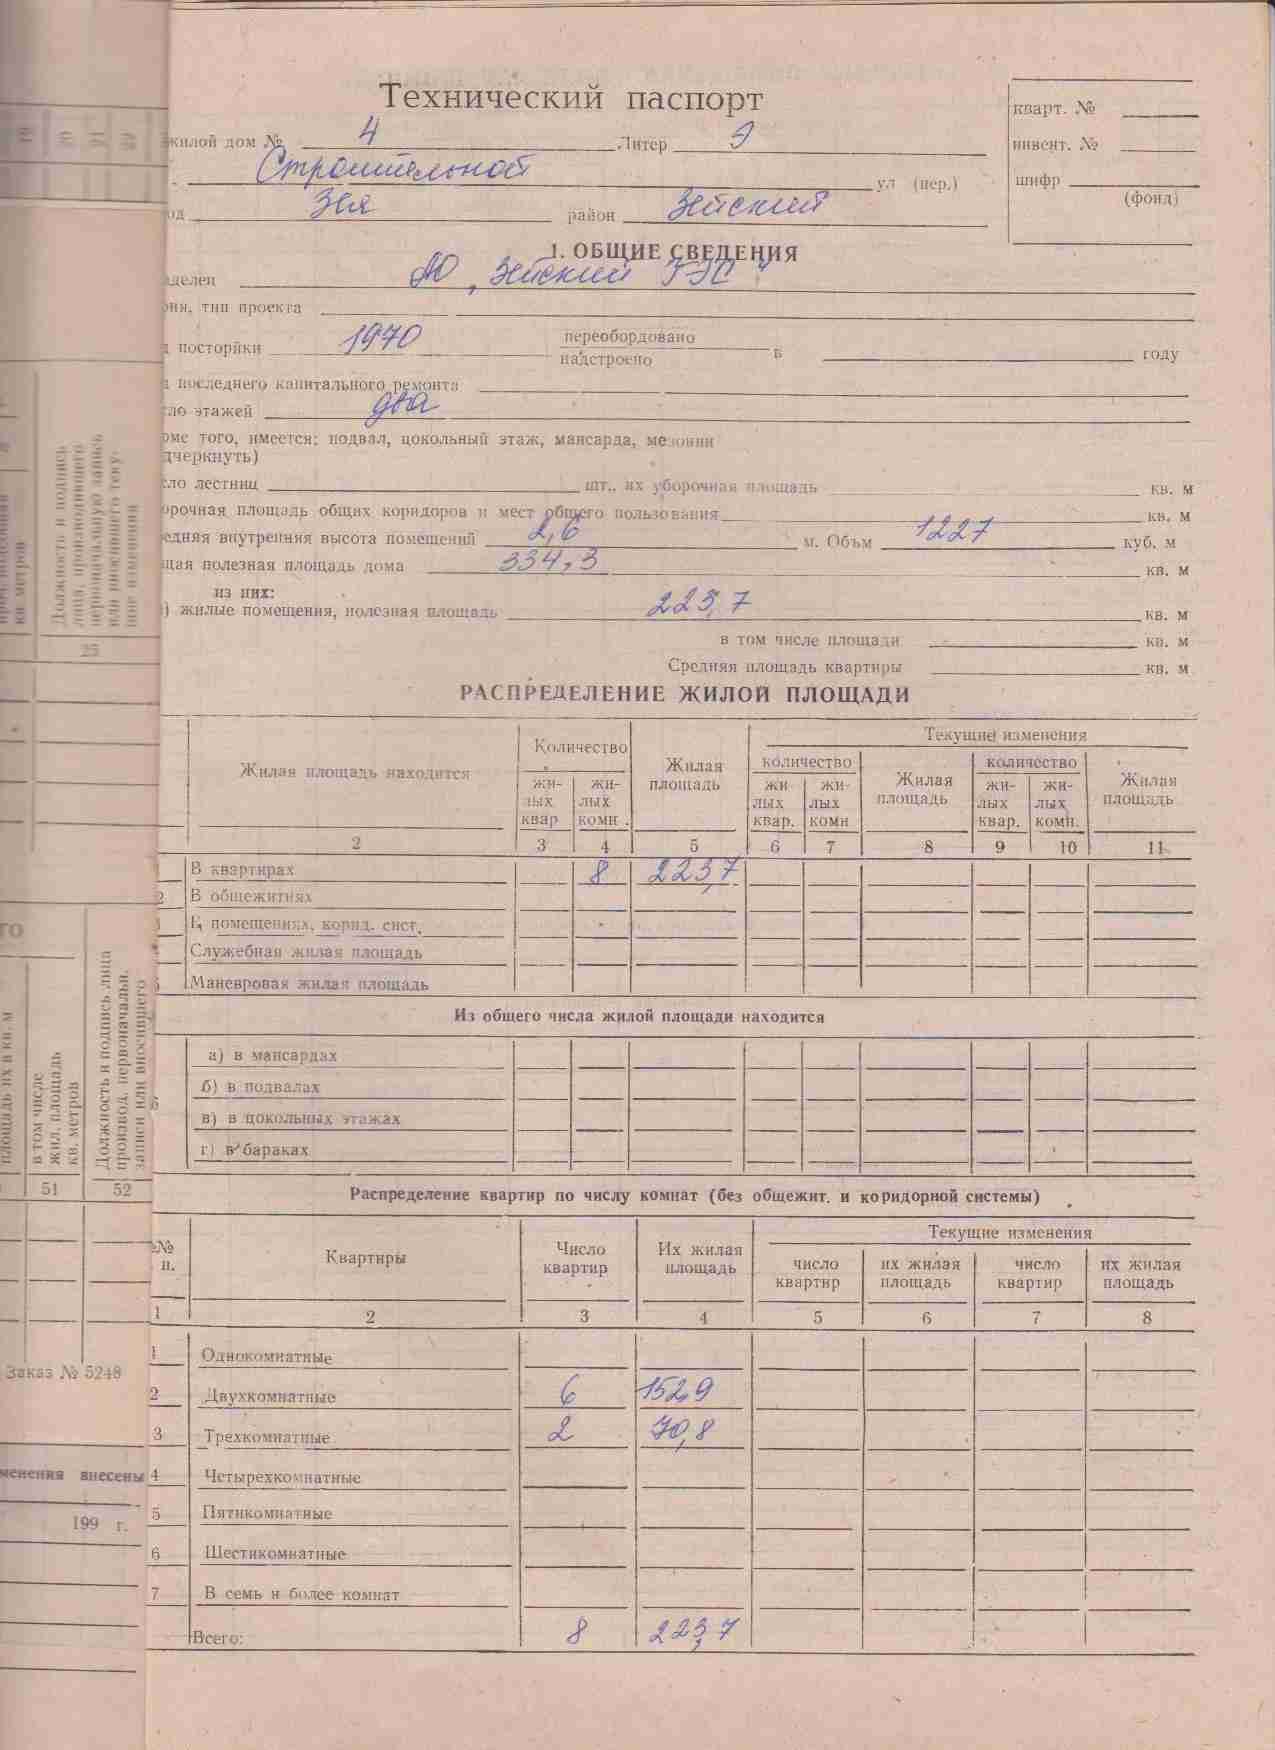 Технический паспорт
жилой дом № 4 Литер Э
Строительной ул (пер.)
од Зея район Зейский
кварт. №
инвент. №
шифр
(фонд)
1. ОБЩИЕ СВЕДЕНИЯ
аделец АО „Зейский ГЭС"
рия, тип проекта
д посторйки 1970 переобордовано
надстроено в году
д последнего капитального ремонта
сло этажей два
оме того, имеется: подвал, цокольный этаж, мансарда, мезонин
дчеркнуть)
сло лестниц шт., их уборочная площадь кв. м
орочная площадь общих коридоров и мест общего пользования кв. м
едняя внутренняя высота помещений 2,6 м. Объм 1227 куб. м
щая полезная площадь дома 334,3 кв. м
из них:
) жилые помещения, полезная площадь 223,7 кв. м
в том числе площади кв. м
Средняя площадь квартиры кв. м
РАСПРЕДЕЛЕНИЕ ЖИЛОЙ ПЛОЩАДИ
Жилая площадь находится
Количество
жи-
лых
квар
жи-
лых
комн.
Жилая
площадь
Текущие изменения
количество
жи
лых
квар.
жи-
лых
комн
Жилая
площадь
количество
жи-
лых
квар.
жи-
лых
комн.
Жилая
площадь
2 3 4 5 6 7 8 9 10 11
1 В квартирах 8 223,7
2 В общежитиях
В помещениях, корид. сист.
Служебная жилая площадь
5 Маневровая жилая площадь
Из общего числа жилой площади находится
6
а) в мансардах
б) в подвалах
в) в цокольных этажах
г) в бараках
Распределение квартир по числу комнат (без общежит. и коридорной системы)
№№
п.
Квартиры
Число
квартир
Их жилая
площадь
Текущие изменения
число
квартир
их жилая
площадь
число
квартир
их жилая
площадь
1 2 3 4 5 6 7 8
1 Однокомнатные
2 Двухкомнатные 6 152,9
3 Трехкомнатные 2 70,8
4 Четырехкомнатные
5 Пятикомнатные
6 Шестикомнатные
7 В семь и более комнат
Всего: 8 223,7
кв. метров
Должность и подпись
лица, производившего
первоначальную запись
или вносившего теку-
щие изменения
25
го
площадь их в кв. м
в том числе
жил. площадь
кв. метров
Должность и подпись лица
производ. первоначальн.
записи или вносившего
51 52
Заказ № 5248
менения внесены
199 г.